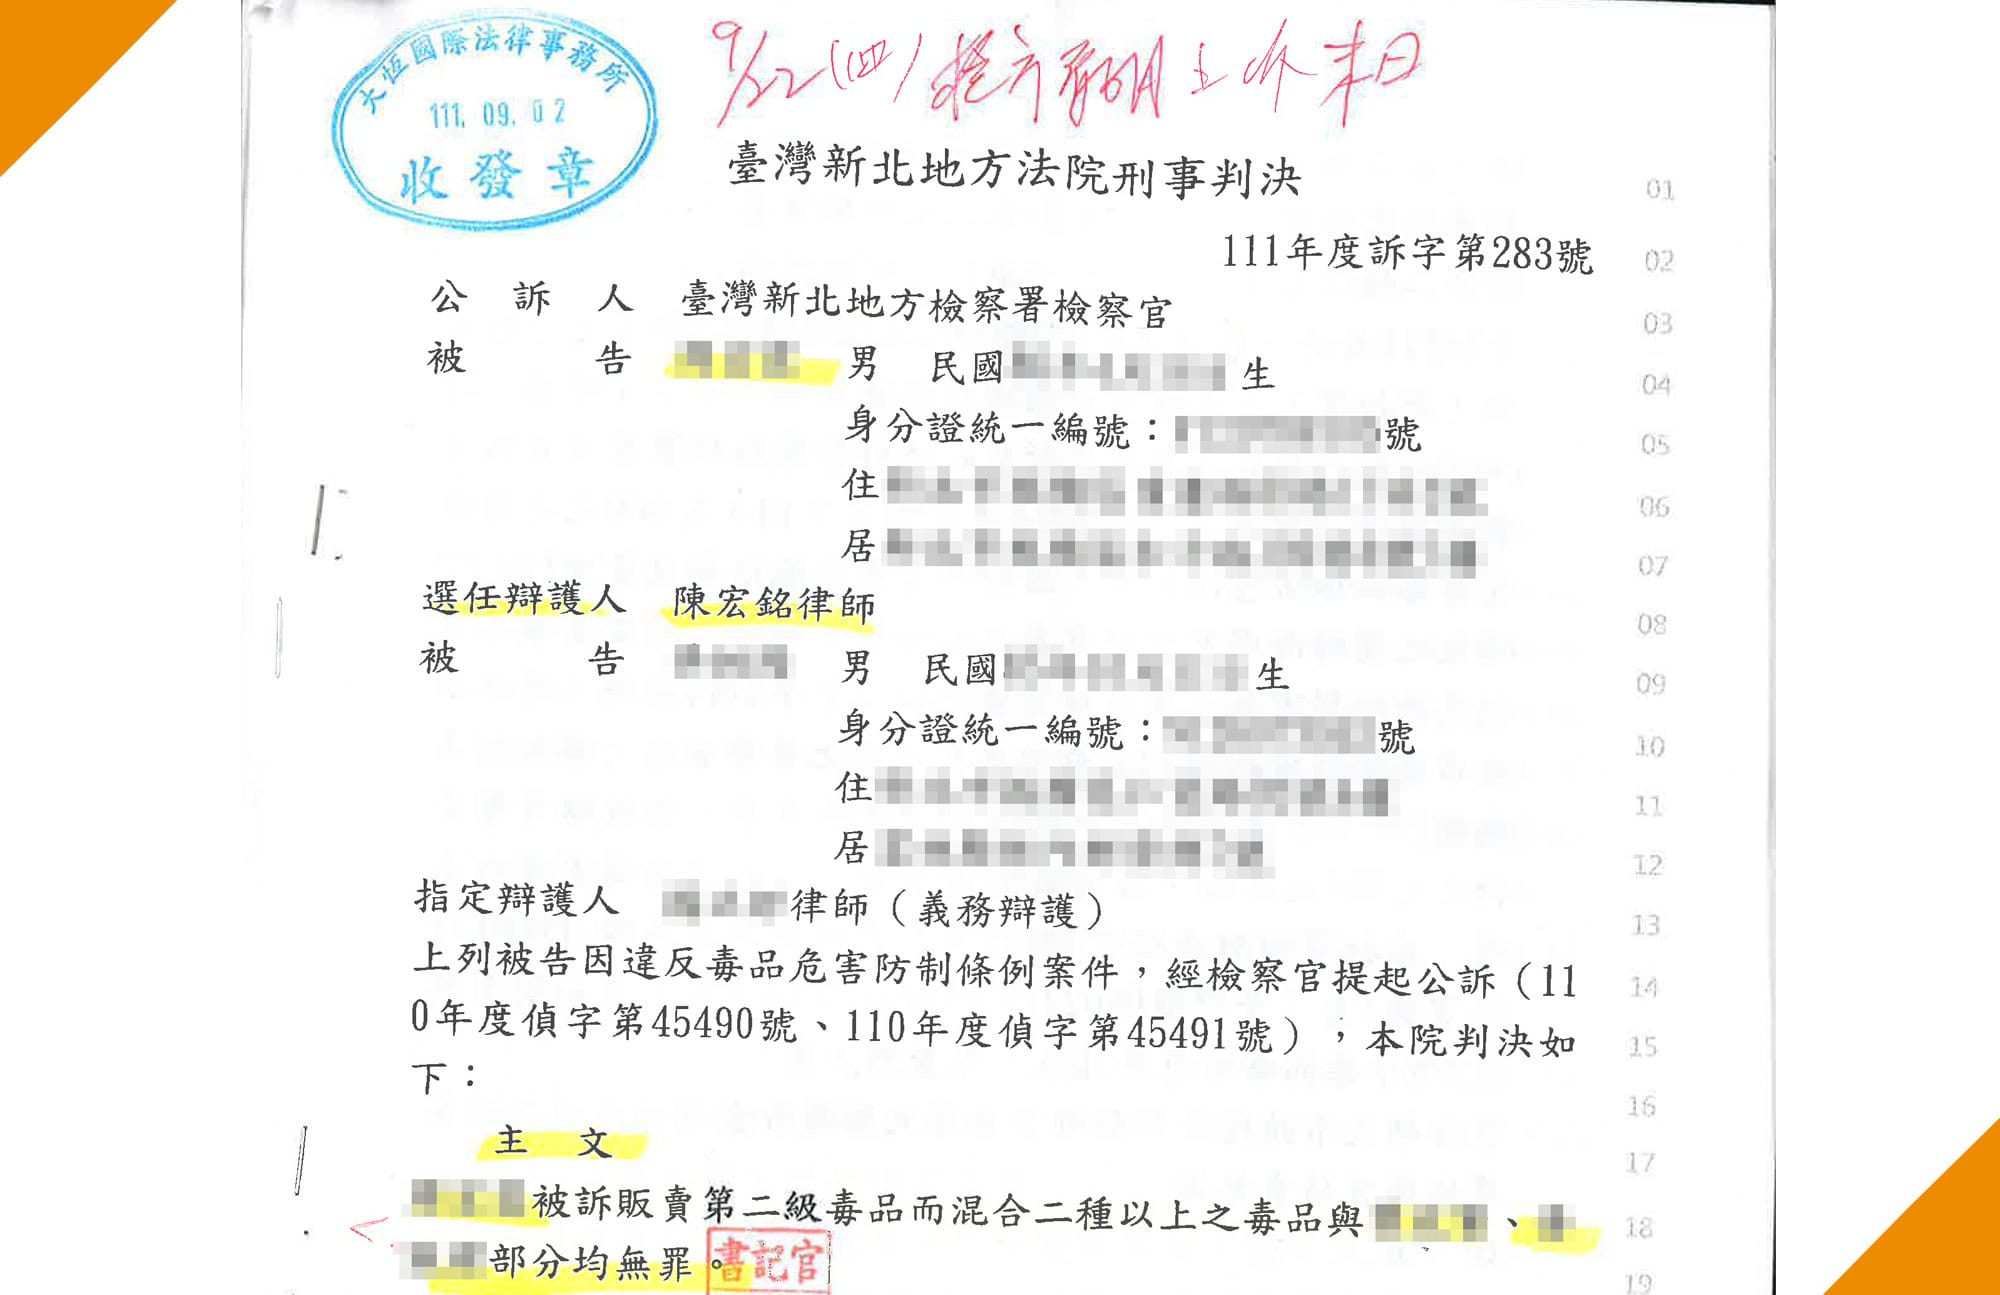 大恆國際法律事務所
111.09.02
收發章
9/22(四)
臺灣新北地方法院刑事判決
01
111年度訴字第283號
02
公訴人 臺灣新北地方檢察署檢察官
03
被告 男 民國 生
04
身分證統一編號： 號
05
住
06
居
07
選任辯護人 陳宏銘律師
08
被告 男 民國 生
09
身分證統一編號： 號
10
住
11
居
12
指定辯護人 律師（義務辯護）
13
上列被告因違反毒品危害防制條例案件，經檢察官提起公訴（11
14
0年度偵字第45490號、110年度偵字第45491號），本院判決如
15
下：
16
主文
17
被訴販賣第二級毒品而混合二種以上之毒品與 、
18
部分均無罪。
書記官
19